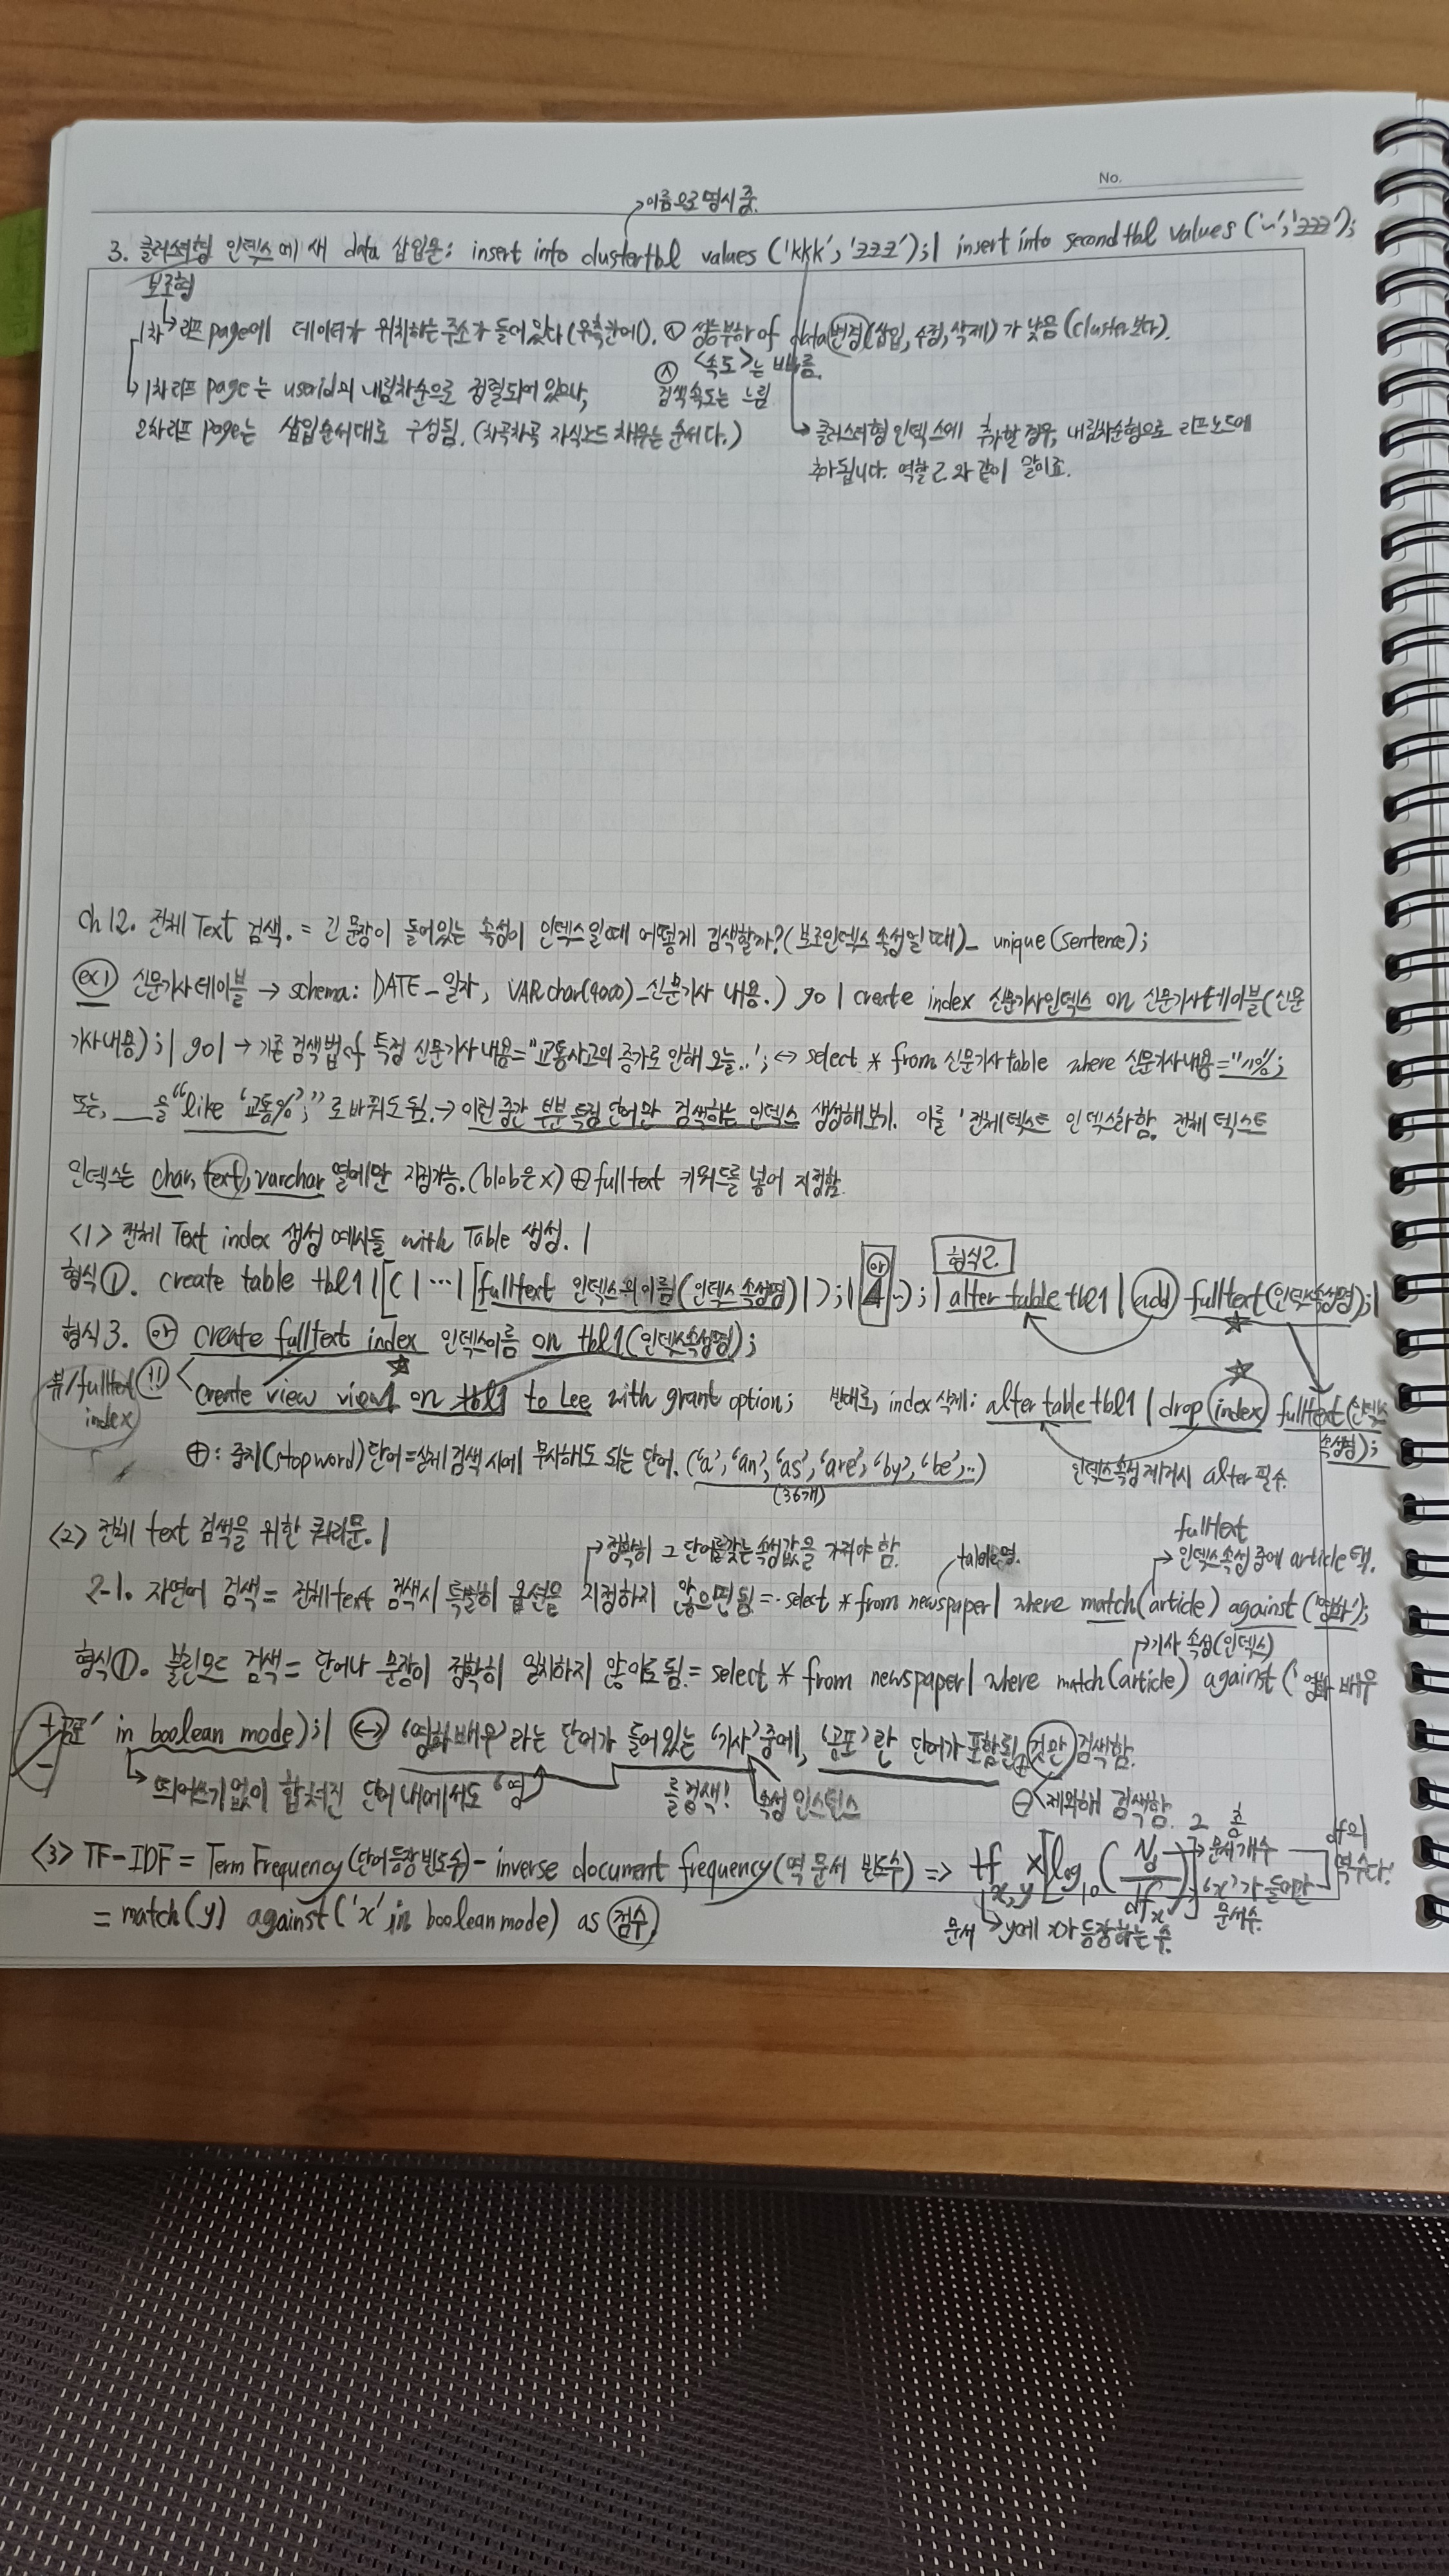 No.
이름으로 명시 중.
3. 클러스터형 인덱스에 새 data 삽입문: insert into clustertbl values ('kkk', 'ㅋㅋㅋ');| insert into secondtbl values ('~', 'ㅋㅋㅋ');
보조형
1차 리프 page에 데이터가 위치하는 주소가 들어있다(우측칸에). 성능부하 of data변경(삽입, 수정, 삭제)가 낮음 (cluster보다).
<속도>는 빠름.
1차리프 page는 userid의 내림차순으로 정렬되어 있으나, 검색속도는 느림
2차리프 page는 삽입순서대로 구성됨. (차곡차곡 자식노드 채우는 순서다.) 클러스터형 인덱스에 추가할 경우, 내림차순형으로 리프노드에
추가됩니다. 역할 2.와 같이 말이죠.
ch 12. 전체 Text 검색. = 긴 문장이 들어있는 속성이 인덱스일때 어떻게 검색할까? (보조인덱스 속성일 때)_ unique(sentence);
ex) 신문기사 테이블 → schema: DATE_일자, VARchar(4000)_신문기사 내용.) go | create index 신문기사인덱스 on 신문기사테이블(신문
기사내용);| go| → 기존 검색법 of 특정 신문기사내용="교통사고의 증가로 인해 오늘..'; ↔ select * from 신문기사table where 신문기사내용="
또는, ___을 "like '교통%';"로 바꿔도 됨. → 이런 중간 부분 특정 단어만 검색하는 인덱스 생성해보기. 이를 '전체텍스트 인덱스라함. 전체 텍스트
인덱스는 char, text, varchar 열에만 지정가능. (blob은 x) ⊕ fulltext 키워드를 넣어 지정함.
<1> 전체 Text index 생성 예시들 with Table 생성. |
형식2.
형식①. create table tbl1 |[( | ··· | [fulltext 인덱스의이름(인덱스 속성명) | );| ~); | alter table tbl1 | add fulltext(인덱스속성명);|
형식 3. create fulltext index 인덱스이름 on tbl1(인덱스속성명);
뷰/fulltext index
create view view1 on tbl1 to Lee with grant option; 반대로, index 삭제: alter table tbl1 | drop index fulltext(인덱스속성명);
⊕: 중지(stopword)단어=실제 검색 시에 무시해도 되는 단어. ('a', 'an', 'as', 'are', 'by', 'be', ..)
(36개)
인덱스속성 제거시 alter 필수.
<2> 전체 text 검색을 위한 쿼리문. |
정확히 그 단어를 갖는 속성값을 가져야 함.
table명.
fulltext
인덱스속성 중에 article 택.
2-1. 자연어 검색= 전체 text 검색시 특별히 옵션을 지정하지 않으면 됨 = select * from newspaper| where match(article) against('영화');
기사 속성(인덱스)
형식①. 불린모드 검색= 단어나 문장이 정확히 일치하지 않아도 됨. = select * from newspaper| where match(article) against('영화 배우
+공포' in boolean mode);| ↔ '영화 배우'라는 단어가 들어있는 '기사'중에, '공포'란 단어가 포함된 것만 검색함.
-
띄어쓰기 없이 합쳐진 단어 내에서도 '영 를 검색! 속성 인스턴스
제외해 검색함.
<3> TF-IDF = Term Frequency(단어등장 빈도수)- inverse document frequency(역 문서 빈도수) => tf x,y × [log10 (N/dfx)]
문서개수
'x'가 들어간
문서수.
df의
역수다!
= match(y) against('x' in boolean mode) as 점수.
문서 y에 x가 등장하는 수.